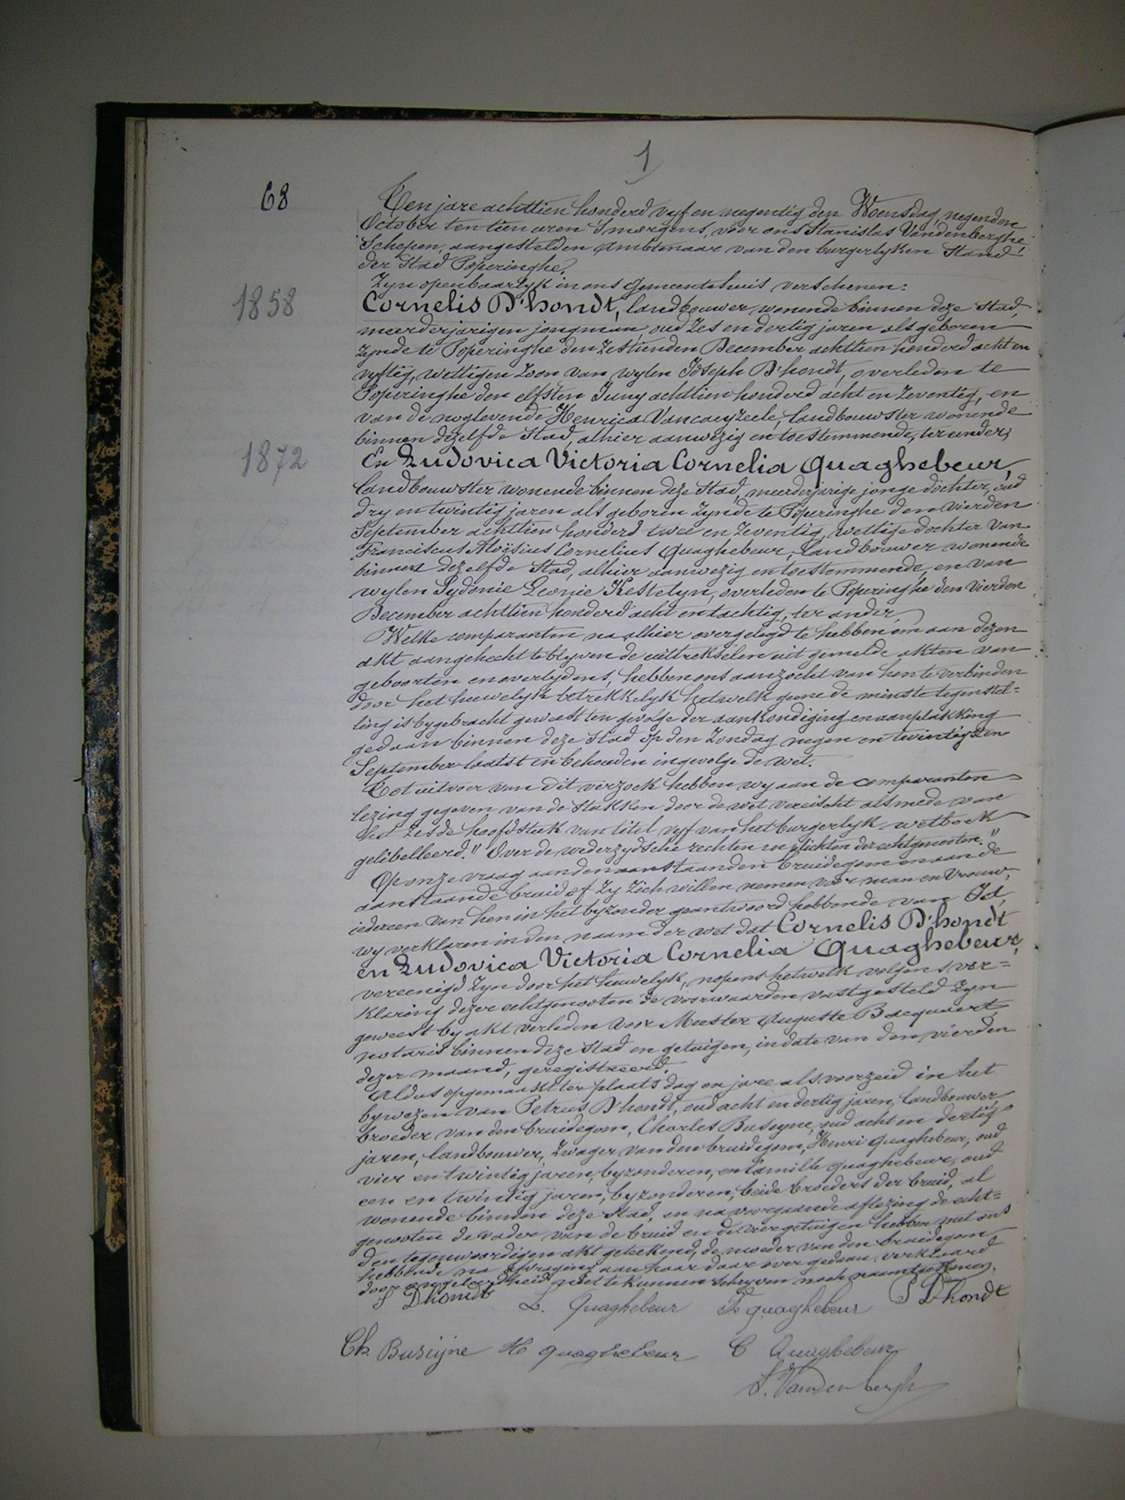 1
68
Ten jare achttien honderd vyf en negentig den Woensdag, negenden
October ten tien uren 's morgens, voor ons Stanislas Vandenberghe
Schepen, aangestelden Ambtenaar van den burgerlyken Stand
der Stad Poperinghe.
Zyn openbaarlyk in ons Gemeentehuis verschenen:
1858
Cornelis D'hondt, landbouwer, wonende binnen deze Stad,
meerderjarigen jongman, oud zes en dertig jaren als geboren
zynde te Poperinghe den zestienden December achttien honderd acht en
vyftig, wettigen zoon van wylen Joseph D'hondt, overleden te
Poperinghe den elfsten Juny achttien honderd acht en zeventig, en
van de noglevende Henrica Vancaeyzeele, landbouwster wonende
binnen dezelfde Stad, alhier aanwezig en toestemmende, ter eender,
1872
En Ludovica Victoria Cornelia Quaghebeur,
landbouwster wonende binnen deze Stad, meerderjarige jonge dochter, oud
dry en twintig jaren als geboren zynde te Poperinghe den vierden
September achttien honderd twee en zeventig, wettige dochter van
Franciscus Aloïsius Cornelius Quaghebeur, landbouwer wonende
binnen dezelfde Stad, alhier aanwezig en toestemmende, en van
wylen Sydonie Leonie Kestelyn, overleden te Poperinghe den vierden
December achttien honderd acht en tachtig, ter ander,
Welke comparanten na alhier overgelegd te hebben om aan dezen
akt aangehecht te blyven de uittrekselen uit gemelde akten van
geboorten en overlydens, hebben ons aanzocht van hen te verbinden
door het huwelyk betrekkelyk hetwelk geene de minste tegenstel=
ling is bygebracht geweest ten gevolge der aankondiging en aanplakking
gedaan binnen deze Stad op den Zondag negen en twintigsten
September laatst en behouden ingevolge de wet.
Tot uitvoer van dit verzoek hebben wy aan de comparanten
lezing gegeven van de stukken door de wet vereischt alsmede van
het zesde hoofdstuk van titel vyf van het burgerlyk wetboek
gelibelleerd: "Over de wederzydsche rechten en plichten der echtgenooten."
Op onze vraag aan den aanstaanden bruidegom en aan de
aanstaande bruid of zy zich willen nemen voor man en vrouw,
iedereen van hen in het byzonder geantwoord hebbende van Ja,
wy verklaren in den naam der wet dat Cornelis D'hondt
en Ludovica Victoria Cornelia Quaghebeur,
vereenigd zyn door het huwelyk, nopens hetwelk volgens ver=
klaring dezer echtgenooten de voorwaarden vastgesteld zyn
geweest by akt verleden voor Meester Auguste Bacquaert,
notaris binnen deze Stad en getuigen, in date van den vierden
dezer maand, geregistreerd.
Aldus opgemaakt ter plaats dag en jare als voorzeid in het
bywezen van Petrus D'hondt, oud acht en dertig jaren, landbouwer,
broeder van den bruidegom, Charles Buseyne, oud acht en dertig
jaren, landbouwer, zwager van den bruidegom, Henri Quaghebeur, oud
vier en twintig jaren, byzonderen, en Camille Quaghebeur, oud
een en twintig jaren, byzonderen, beide broeders der bruid, al
wonende binnen deze Stad, en na voorgaande aflezing de echt=
genooten de vader van de bruid en de vier getuigen hebben met ons
den tegenwoordigen akt geteekend, de moeder van den bruidegom
hebbende na afvraging aan haar daar over gedaan, verklaard
door ongeleerdheid niet te kunnen schryven noch naamteekenen.
Dhondt L. Quaghebeur Fr quaghebeur P Dhondt
Ch Buseyne H quaghebeur C Quaghebeur
S. Vandenberghe